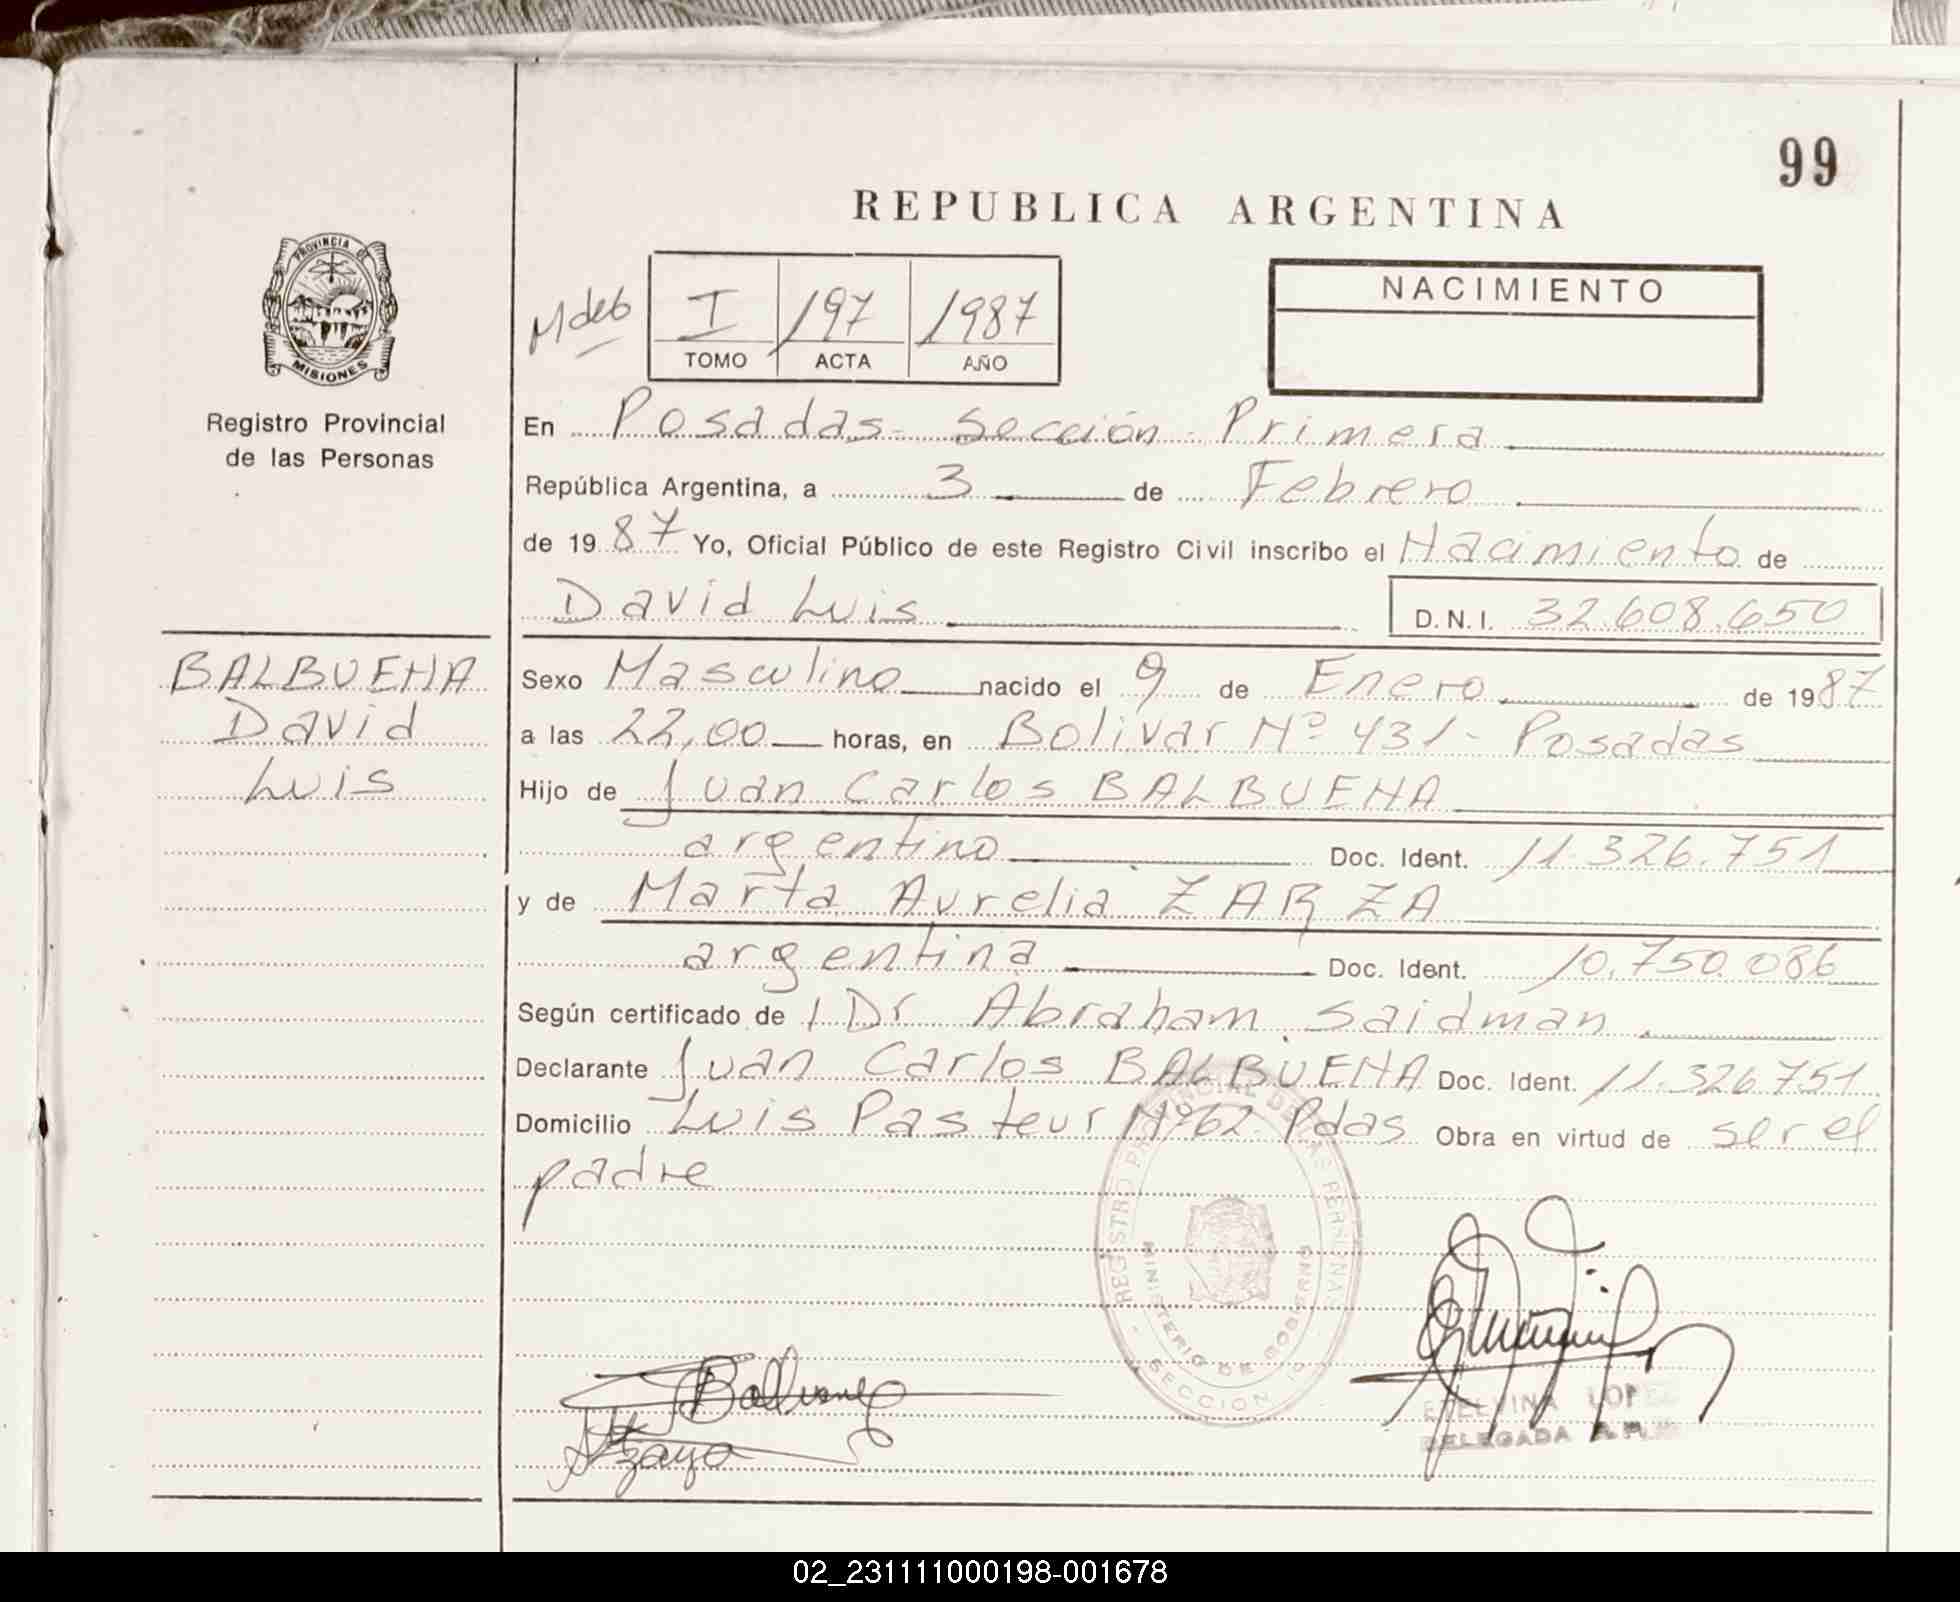 99
REPUBLICA ARGENTINA
PROVINCIA DE
MISIONES
Registro Provincial
de las Personas
I 197 1987
TOMO ACTA AÑO
NACIMIENTO
En Posadas - Sección - Primera
República Argentina, a 3 de Febrero
de 1987 Yo, Oficial Público de este Registro Civil inscribo el Nacimiento de
David Luis D.N.I. 32.608.650
BALBUENA
David
Luis
Sexo Masculino nacido el 9 de Enero de 1987
a las 22,00 horas, en Bolivar Nº 431 - Posadas
Hijo de Juan Carlos BALBUENA
argentino Doc. Ident. 11.326.751
y de Marta Aurelia ZARZA
argentina Doc. Ident. 10.750.086
Según certificado de l Dr Abraham Saidman
Declarante Juan Carlos BALBUENA Doc. Ident. 11.326.751
Domicilio Luis Pasteur Nº 62 Pdas Obra en virtud de ser el
padre
REGISTRO PROVINCIAL DE LAS PERSONAS
MINISTERIO DE GOBIERNO
SECCION 1º
ETELVINA LOPEZ
DELEGADA
02_231111000198-001678